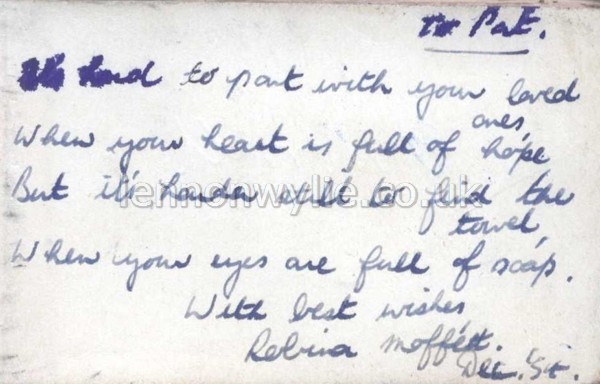 To Pat.
Its hard to part with your loved
ones,
When your heart is full of hope
But it's harder still to find the
towel,
When your eyes are full of soap.
With best wishes,
Robina Moffett.
Dec. '54.
lennonwylie.co.uk